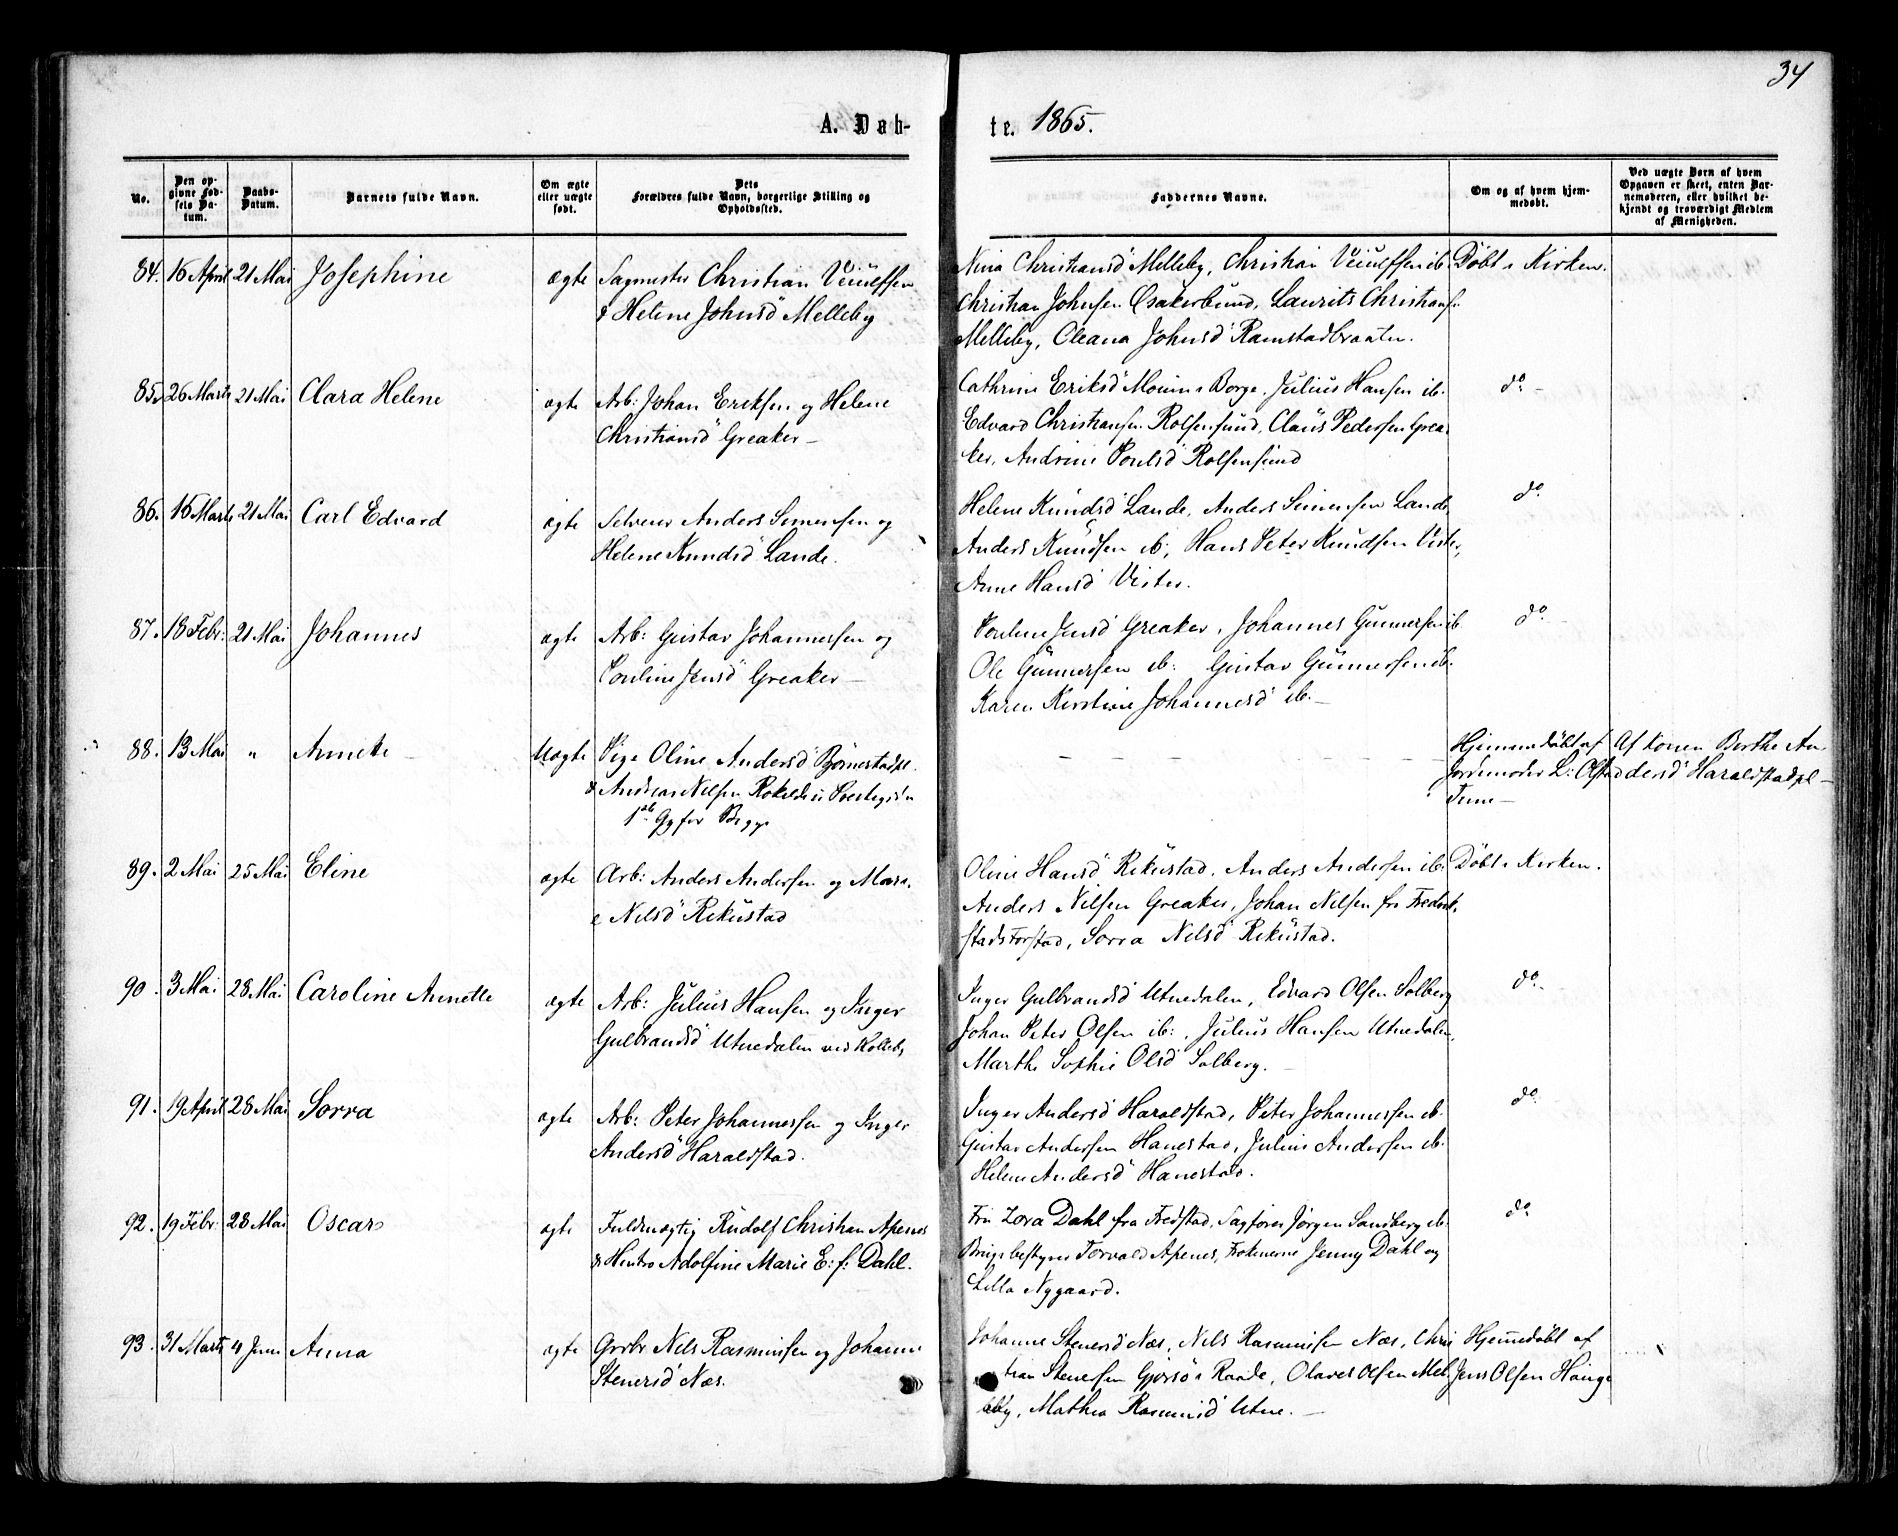 34
A. Døb-te. 1865.
No.
Den opgivne Fødsels Datum.
Daabs-Datum.
Barnets fulde Navn.
Om ægte eller uægte født.
Dets Forældres fulde Navn, borgerlige Stilling og Opholdssted.
Faddernes Navne.
Om og af hvem hjemmedøbt.
Ved uægte Børn af hvem Opgaven er skeet, enten Barnemoderen, eller hvilket bekjendt og troværdigt Medlem af Menigheden.
84. 16 April 21 Mai Josephine ægte Sagmester Christian
& Helene Johnsd Melleby
Nina Christiansd Melleby, Christian ib.
Christian Johnsen Laurits Christians.
Melleby, Oleana Johnsd Ramstadbraaten.
Døbt i Kirken.
85. 26 Marts 21 Mai Clara Helene ægte Arb: Johan Eriksen og Helene
Christiansd Greaker –
Cathrine Eriksd Moum i Borge, Julius Hansen ib.
Edvard Christiansen Rolfsøsund, Claus Pedersen Grea-
ker, Andrine Poulsd Rolfsøsund
do –
86. 16 Marts 21 Mai Carl Edvard ægte Selveier Anders Simensen og
Helene Knudsd Lande.
Helene Knudsd Lande, Anders Simensen Lande
Anders Knudsen ib, Hans Peter Knudsen Vister,
Anne Hansd Vister.
do
87. 18 Febr: 21 Mai Johannes ægte Arb: Gustav Johannessen og
Pouline Jensd Greaker –
Pouline Jensd Greaker, Johannes Gunnersen ib
Ole Gunnersen ib: Gustav Gunnersen ib.
Karen Kirstine Johannesd ib. –
do
88. 13 Mai " Annette – Uægte Pige Oline Andersd Bjørnestadpl.
& Andreas Nilsen
1ste Gg for Begge
Hjemmedøbt af
Jordemoder L: Olsd
Tune –
Af Konen Berthe An-
dersd Haraldstadpl –
89. 2 Mai 25 Mai Eline ægte Arb: Anders Andersen og Maria
Nilsd Rekustad
Oline Hansd Rekustad, Anders Andersen ib:
Anders Nilsen Greaker, Johan Nilsen fra Fredrik-
stads Forstad, Sorra Nilsd Rekustad.
Døbt i Kirken.
90. 3 Mai 28 Mai Caroline Annette ægte Arb: Julius Hansen og Inger
Gulbrandsd Utnedalen ved Kolleby
Inger Gulbrandsd Utnedalen, Edvard Olsen Solberg
Johan Peter Olsen ib:, Julius Hansen Utnedalen,
Marthe Sophie Olsd Solberg. –
do
91. 19 April 28 Mai Sorra ægte Arb: Peter Johannessen og Inger
Andersd Haraldstad.
Inger Andersd Haraldstad, Peter Johannessen ib.
Gustav Andersen Hanestad, Julius Andersen ib.
Helene Andersd Hanestad.
do
92. 19 Febr: 28 Mai Oscar ægte Fuldmægtig Rudolf Christian Apenes
& Hustro Adolfine Marie E: f: Dahl.
Fru Zora Dahl fra Fredstad, Sagfører Jørgen Sandberg ib.
Brugsbestyrer Torvald Apenes, Frøknerne Jenny Dahl og
Lilla Nygaard.
do
93. 31 Marts 4 Juni Anna ægte Grdbr Nils Rasmussen og Johanne
Stenersd Næs.
Johanne Stenersd Næs, Nils Rasmussen Næs, Chris
tian Stenersen i Raade, Olaves Olsen Mel-
leby, Mathea Rasmusd Utne. –
Hjemmedøbt af
Jens Olsen Hauge